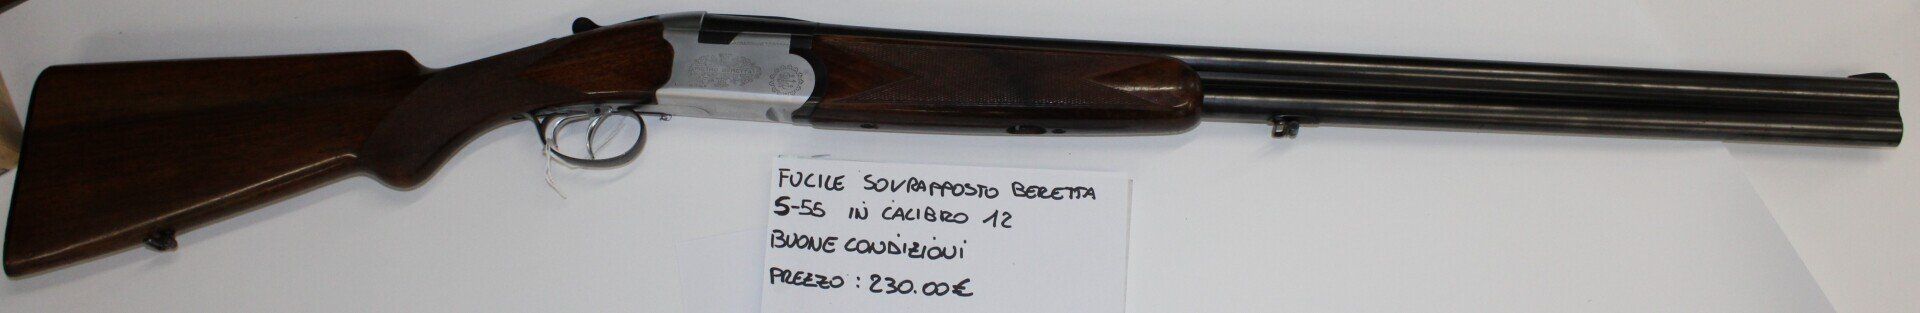 PIETRO BERETTA
FUCILE SOVRAPPOSTO BERETTA
S-55 IN CALIBRO 12
BUONE CONDIZIONI
PREZZO : 230.00€